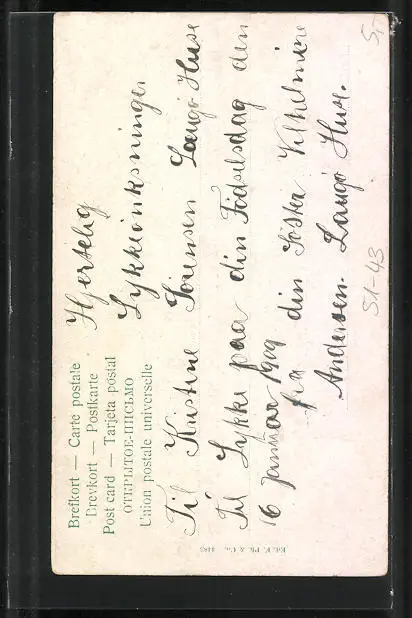 Brefkort — Carte postale
Brevkort — Postkarte
Post card — Tarjeta postal
ОТКРЫТОЕ ПИСЬМО
Union postale universelle
Hjertelig
Lykkeönkninger
Til Kirstine Sörensen Langö Huse
Til Lykke paa din Födselsdag den
16 Januar 1909 din Söster Vilhelmine
fra
Andersen. Langö Huse.
S1-43